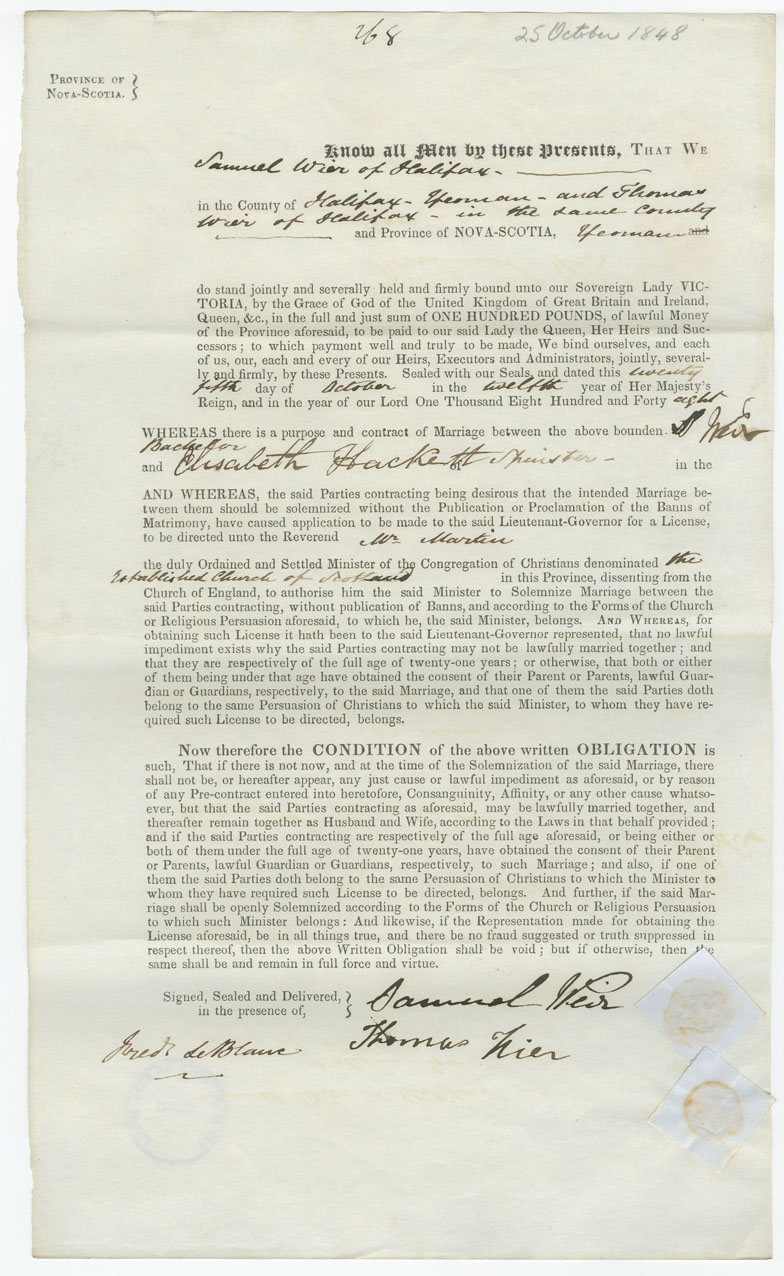 268
25 October 1848
PROVINCE OF
NOVA-SCOTIA.
Know all Men by these Presents, THAT WE
Samuel Wier of Halifax -
in the County of Halifax - Yeoman - and Thomas
Wier of Halifax - in the same County
and Province of NOVA-SCOTIA, Yeoman and
do stand jointly and severally held and firmly bound unto our Sovereign Lady VIC-
TORIA, by the Grace of God of the United Kingdom of Great Britain and Ireland,
Queen, &c., in the full and just sum of ONE HUNDRED POUNDS, of lawful Money
of the Province aforesaid, to be paid to our said Lady the Queen, Her Heirs and Suc-
cessors; to which payment well and truly to be made, We bind ourselves, and each
of us, our, each and every of our Heirs, Executors and Administrators, jointly, several-
ly and firmly, by these Presents. Sealed with our Seals, and dated this twenty
fifth day of October in the twelfth year of Her Majesty's
Reign, and in the year of our Lord One Thousand Eight Hundred and Forty eight
WHEREAS there is a purpose and contract of Marriage between the above bounden. S Weir
Bachelor
and Elisabeth Hackett Spinster - in the
AND WHEREAS, the said Parties contracting being desirous that the intended Marriage be-
tween them should be solemnized without the Publication or Proclamation of the Banns of
Matrimony, have caused application to be made to the said Lieutenant-Governor for a License,
to be directed unto the Reverend Mr Martin
the duly Ordained and Settled Minister of the Congregation of Christians denominated the
Established Church of Scotland in this Province, dissenting from the
Church of England, to authorise him the said Minister to Solemnize Marriage between the
said Parties contracting, without publication of Banns, and according to the Forms of the Church
or Religious Persuasion aforesaid, to which he, the said Minister, belongs. AND WHEREAS, for
obtaining such License it hath been to the said Lieutenant-Governor represented, that no lawful
impediment exists why the said Parties contracting may not be lawfully married together; and
that they are respectively of the full age of twenty-one years; or otherwise, that both or either
of them being under that age have obtained the consent of their Parent or Parents, lawful Guar-
dian or Guardians, respectively, to the said Marriage, and that one of them the said Parties doth
belong to the same Persuasion of Christians to which the said Minister, to whom they have re-
quired such License to be directed, belongs.
Now therefore the CONDITION of the above written OBLIGATION is
such, That if there is not now, and at the time of the Solemnization of the said Marriage, there
shall not be, or hereafter appear, any just cause or lawful impediment as aforesaid, or by reason
of any Pre-contract entered into heretofore, Consanguinity, Affinity, or any other cause whatso-
ever, but that the said Parties contracting as aforesaid, may be lawfully married together, and
thereafter remain together as Husband and Wife, according to the Laws in that behalf provided;
and if the said Parties contracting are respectively of the full age aforesaid, or being either or
both of them under the full age of twenty-one years, have obtained the consent of their Parent
or Parents, lawful Guardian or Guardians, respectively, to such Marriage; and also, if one of
them the said Parties doth belong to the same Persuasion of Christians to which the Minister to
whom they have required such License to be directed, belongs. And further, if the said Mar-
riage shall be openly Solemnized according to the Forms of the Church or Religious Persuasion
to which such Minister belongs: And likewise, if the Representation made for obtaining the
License aforesaid, be in all things true, and there be no fraud suggested or truth suppressed in
respect thereof, then the above Written Obligation shall be void; but if otherwise, then the
same shall be and remain in full force and virtue.
Signed, Sealed and Delivered,
in the presence of,
Samuel Weir
Thomas Wier
Fredk LeBlanc